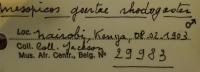 mesopicos goertae rhodogaster
♂
Loc. Nairobi, Kenya, 08.02.1903
Coll. Coll. Jackson
Mus. Afr. Centr., Belg. Nº 29983